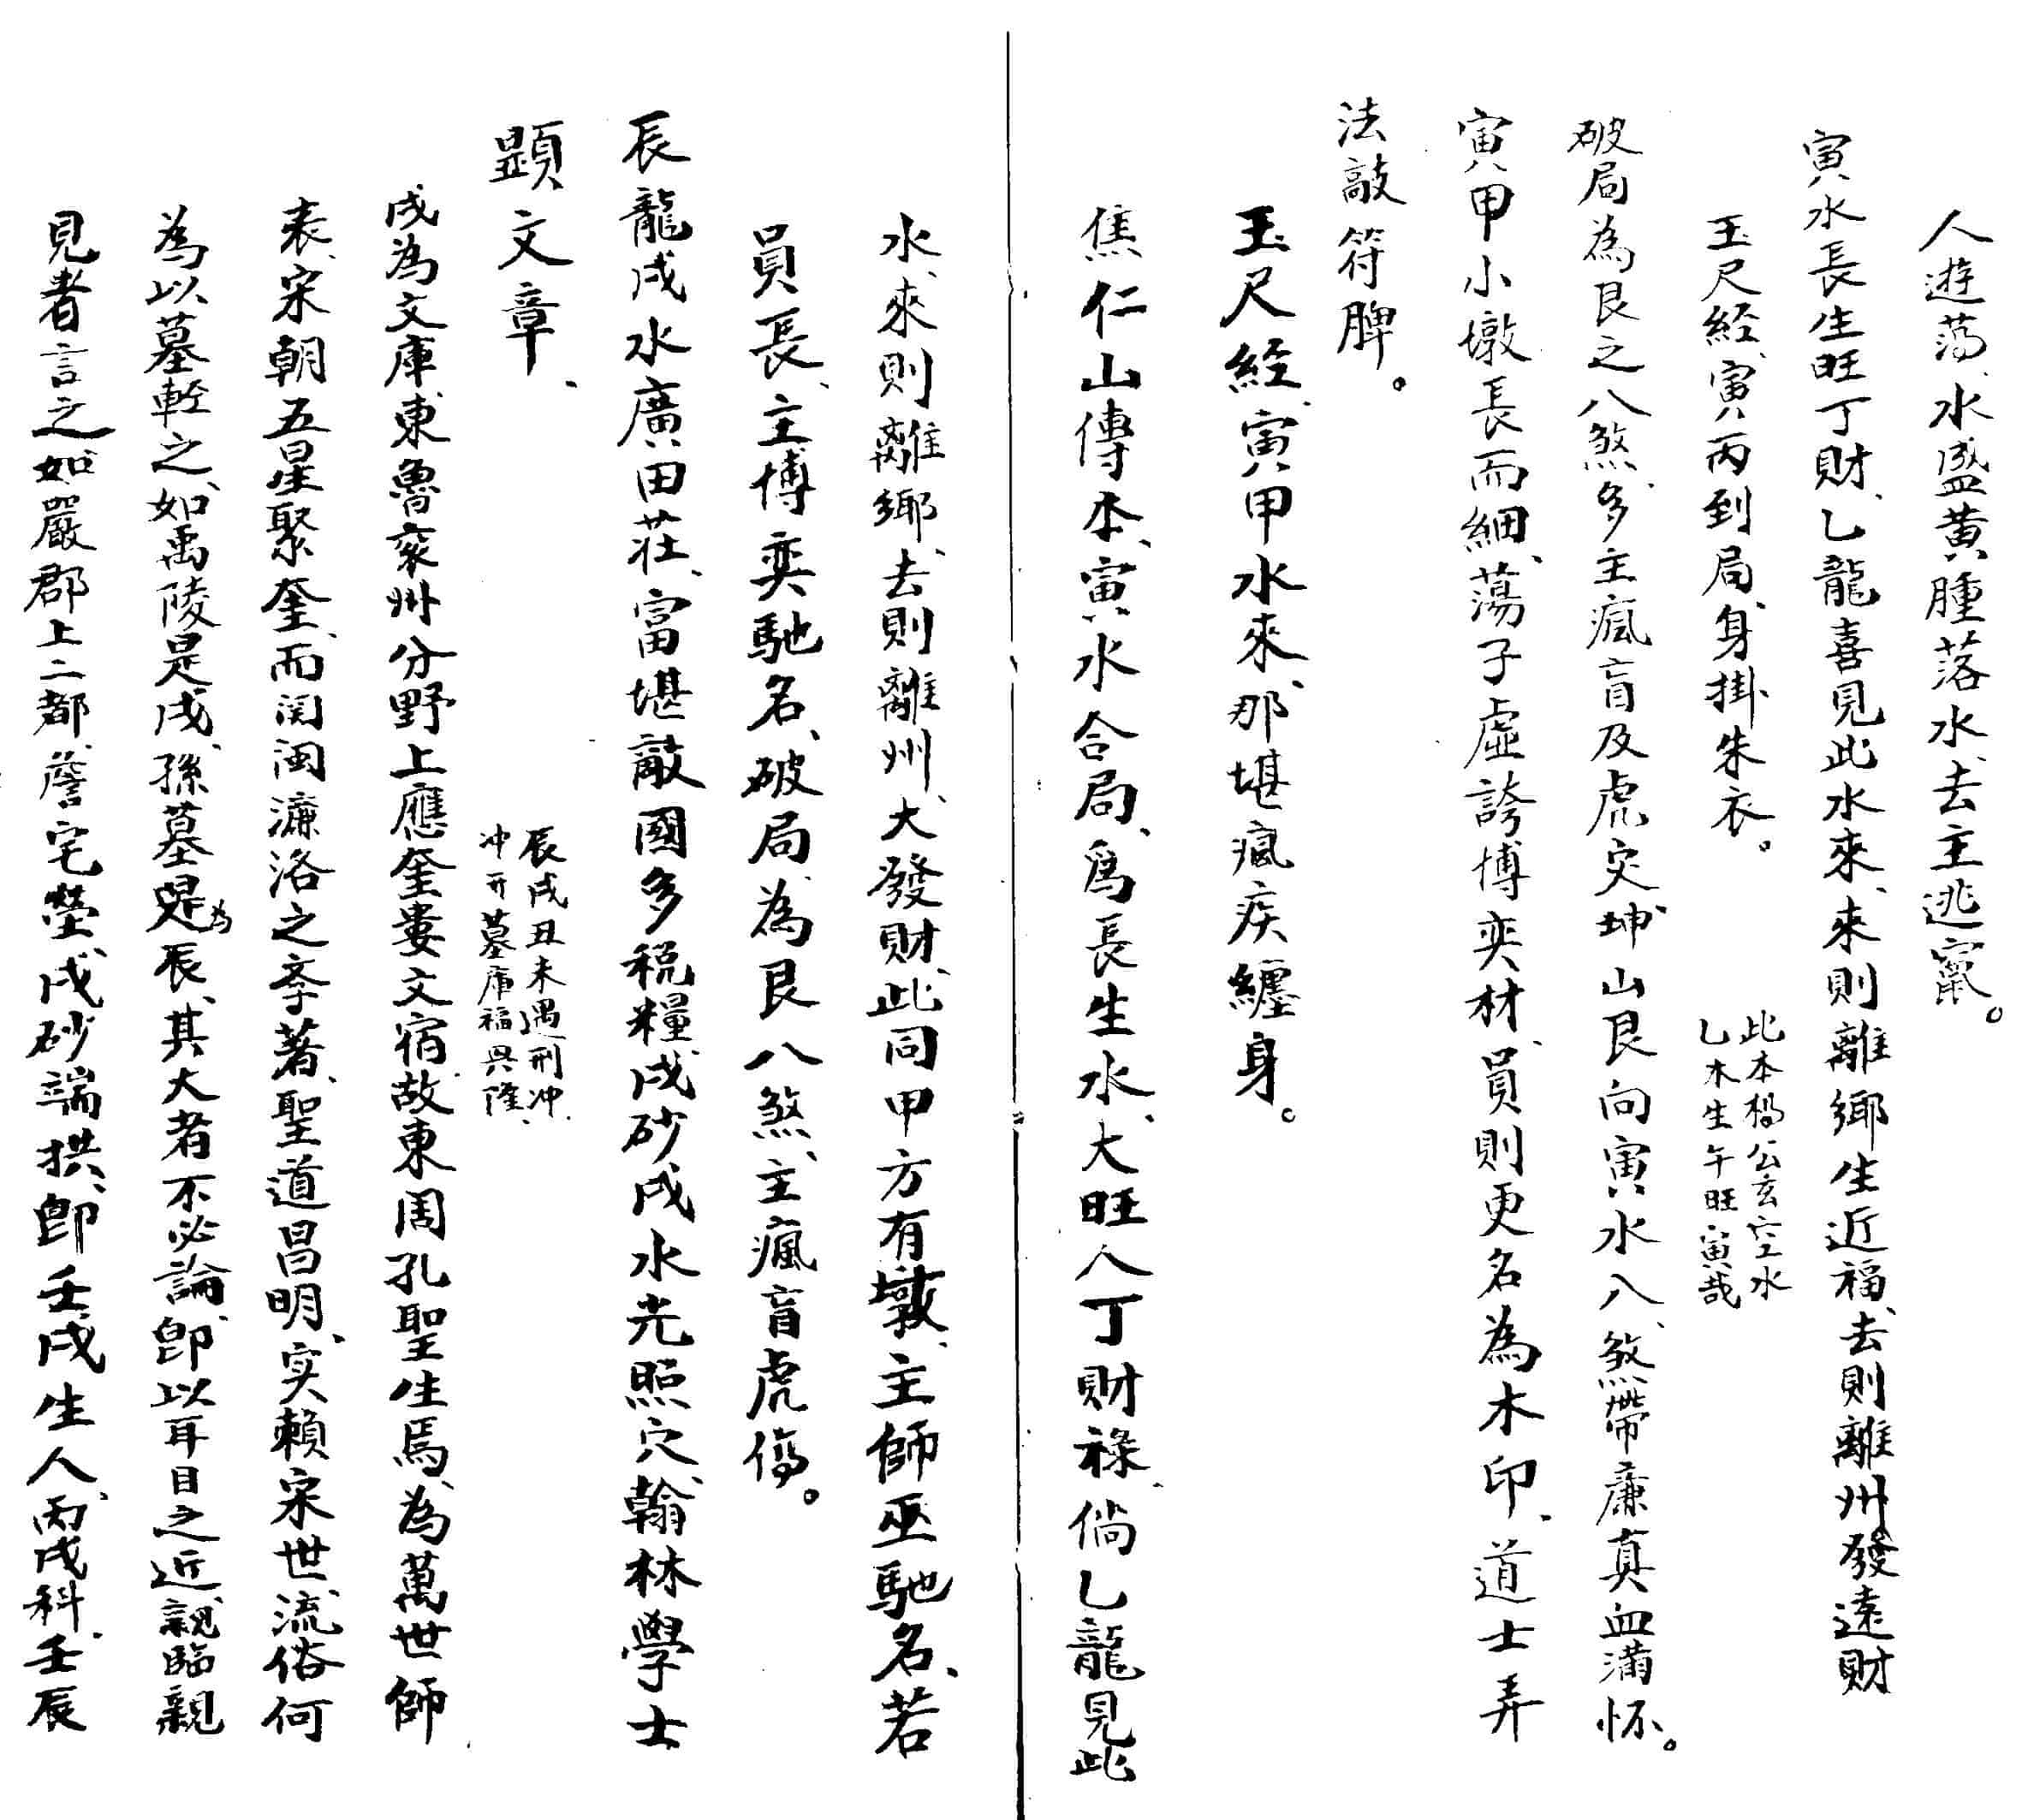 人遊蕩、水盛黃腫落水、去主逃竄。
寅水長生旺丁財、乙龍喜見此水來、來則離鄉生近福、去則離州發遠財
玉尺經、寅丙到局、身掛朱衣。
此本楊公玄空水
乙木生午旺寅哉
破局為艮之八煞、多主瘋盲及虎灾、坤山艮向寅水入、煞帶廉真血滿怀。
寅甲小墩長而細、蕩子虛誇博奕材、員則更名為木印、道士弄
法敲符脾。
玉尺經、寅甲水來、那堪瘋疾纏身。
焦仁山傳本、寅水合局、爲長生水、大旺人丁財祿、倘乙龍見此
水、來則離鄉、去則離州、大發財、此同甲方有墩、主師巫馳名、若
員長、主博奕馳名、破局、為艮八煞、主瘋盲虎傷。
辰龍戌水廣田莊、富堪敵國多税糧、戌砂戌水光照穴、翰林學士
顕文章、
辰戌丑未遇刑冲、
冲开墓庫福興隆、
戌為文庫、東魯兗州分野上應奎婁文宿、故東周孔聖生焉、為萬世師
表、宋朝五星聚奎、而関閩濂洛之斈著、聖道昌明、实賴宋世、流俗何
為以墓輕之、如禹陵是戌、孫墓是為辰、其大者不必論、卽以耳目之近、親臨親
見者言之、如嚴郡上二都、詹宅塋、戌砂端拱、卽壬戌生人、丙戌科、壬辰